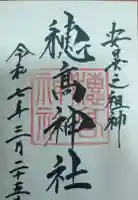 安曇之祖神
穂高神社
令和七年三月二十五